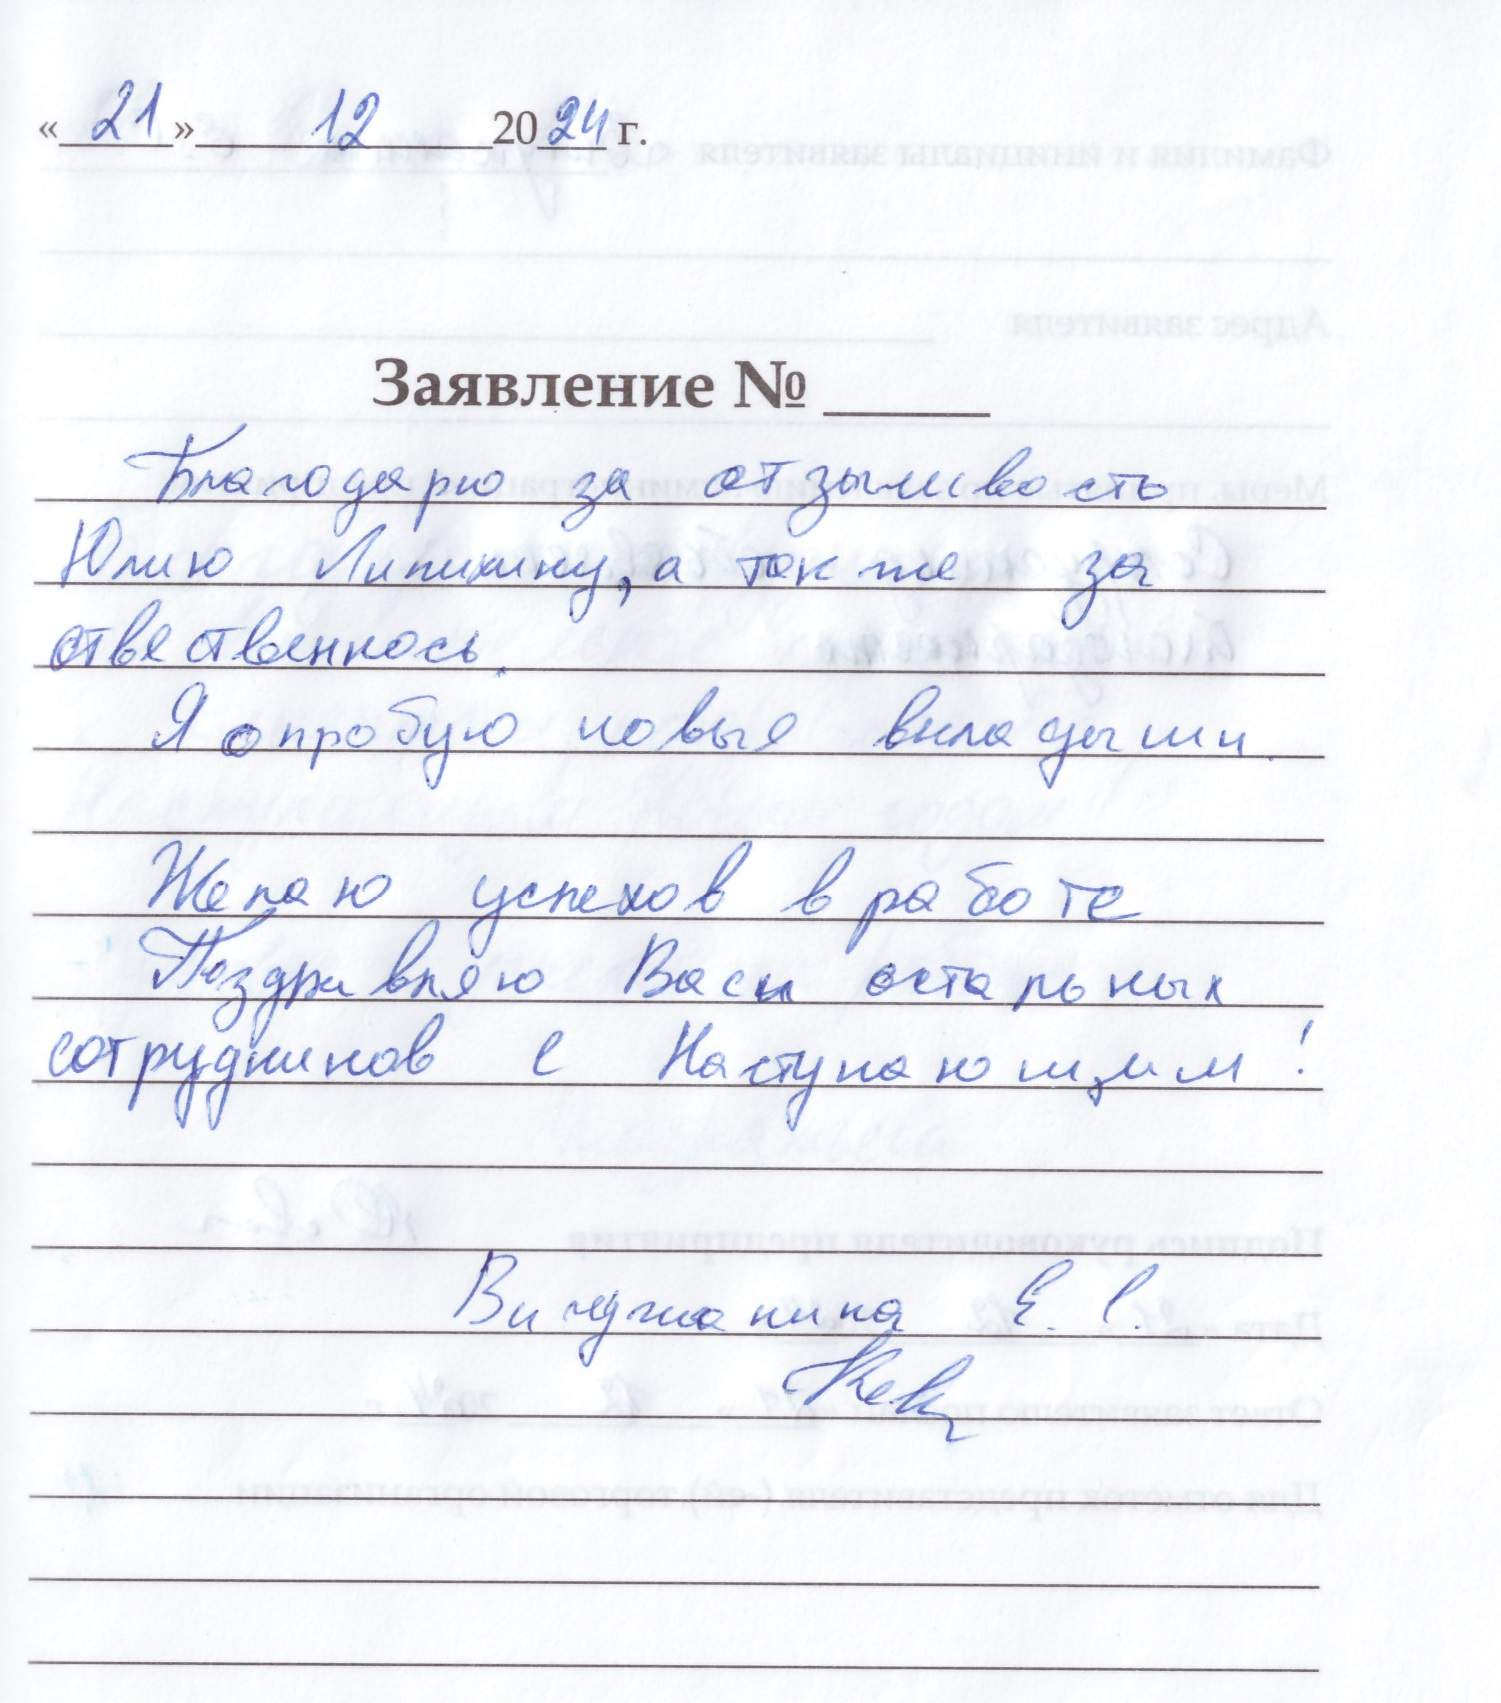 «21» 12 2024 г.
Заявление № ____
Благодарю за отзывчивость
Юлию Липихину, а также за
отвественнось.
Я опробую новые вкладыши.
Желаю успехов в работе
Поздравляю Вас и остальных
сотрудников с Наступающим!
Е. С.